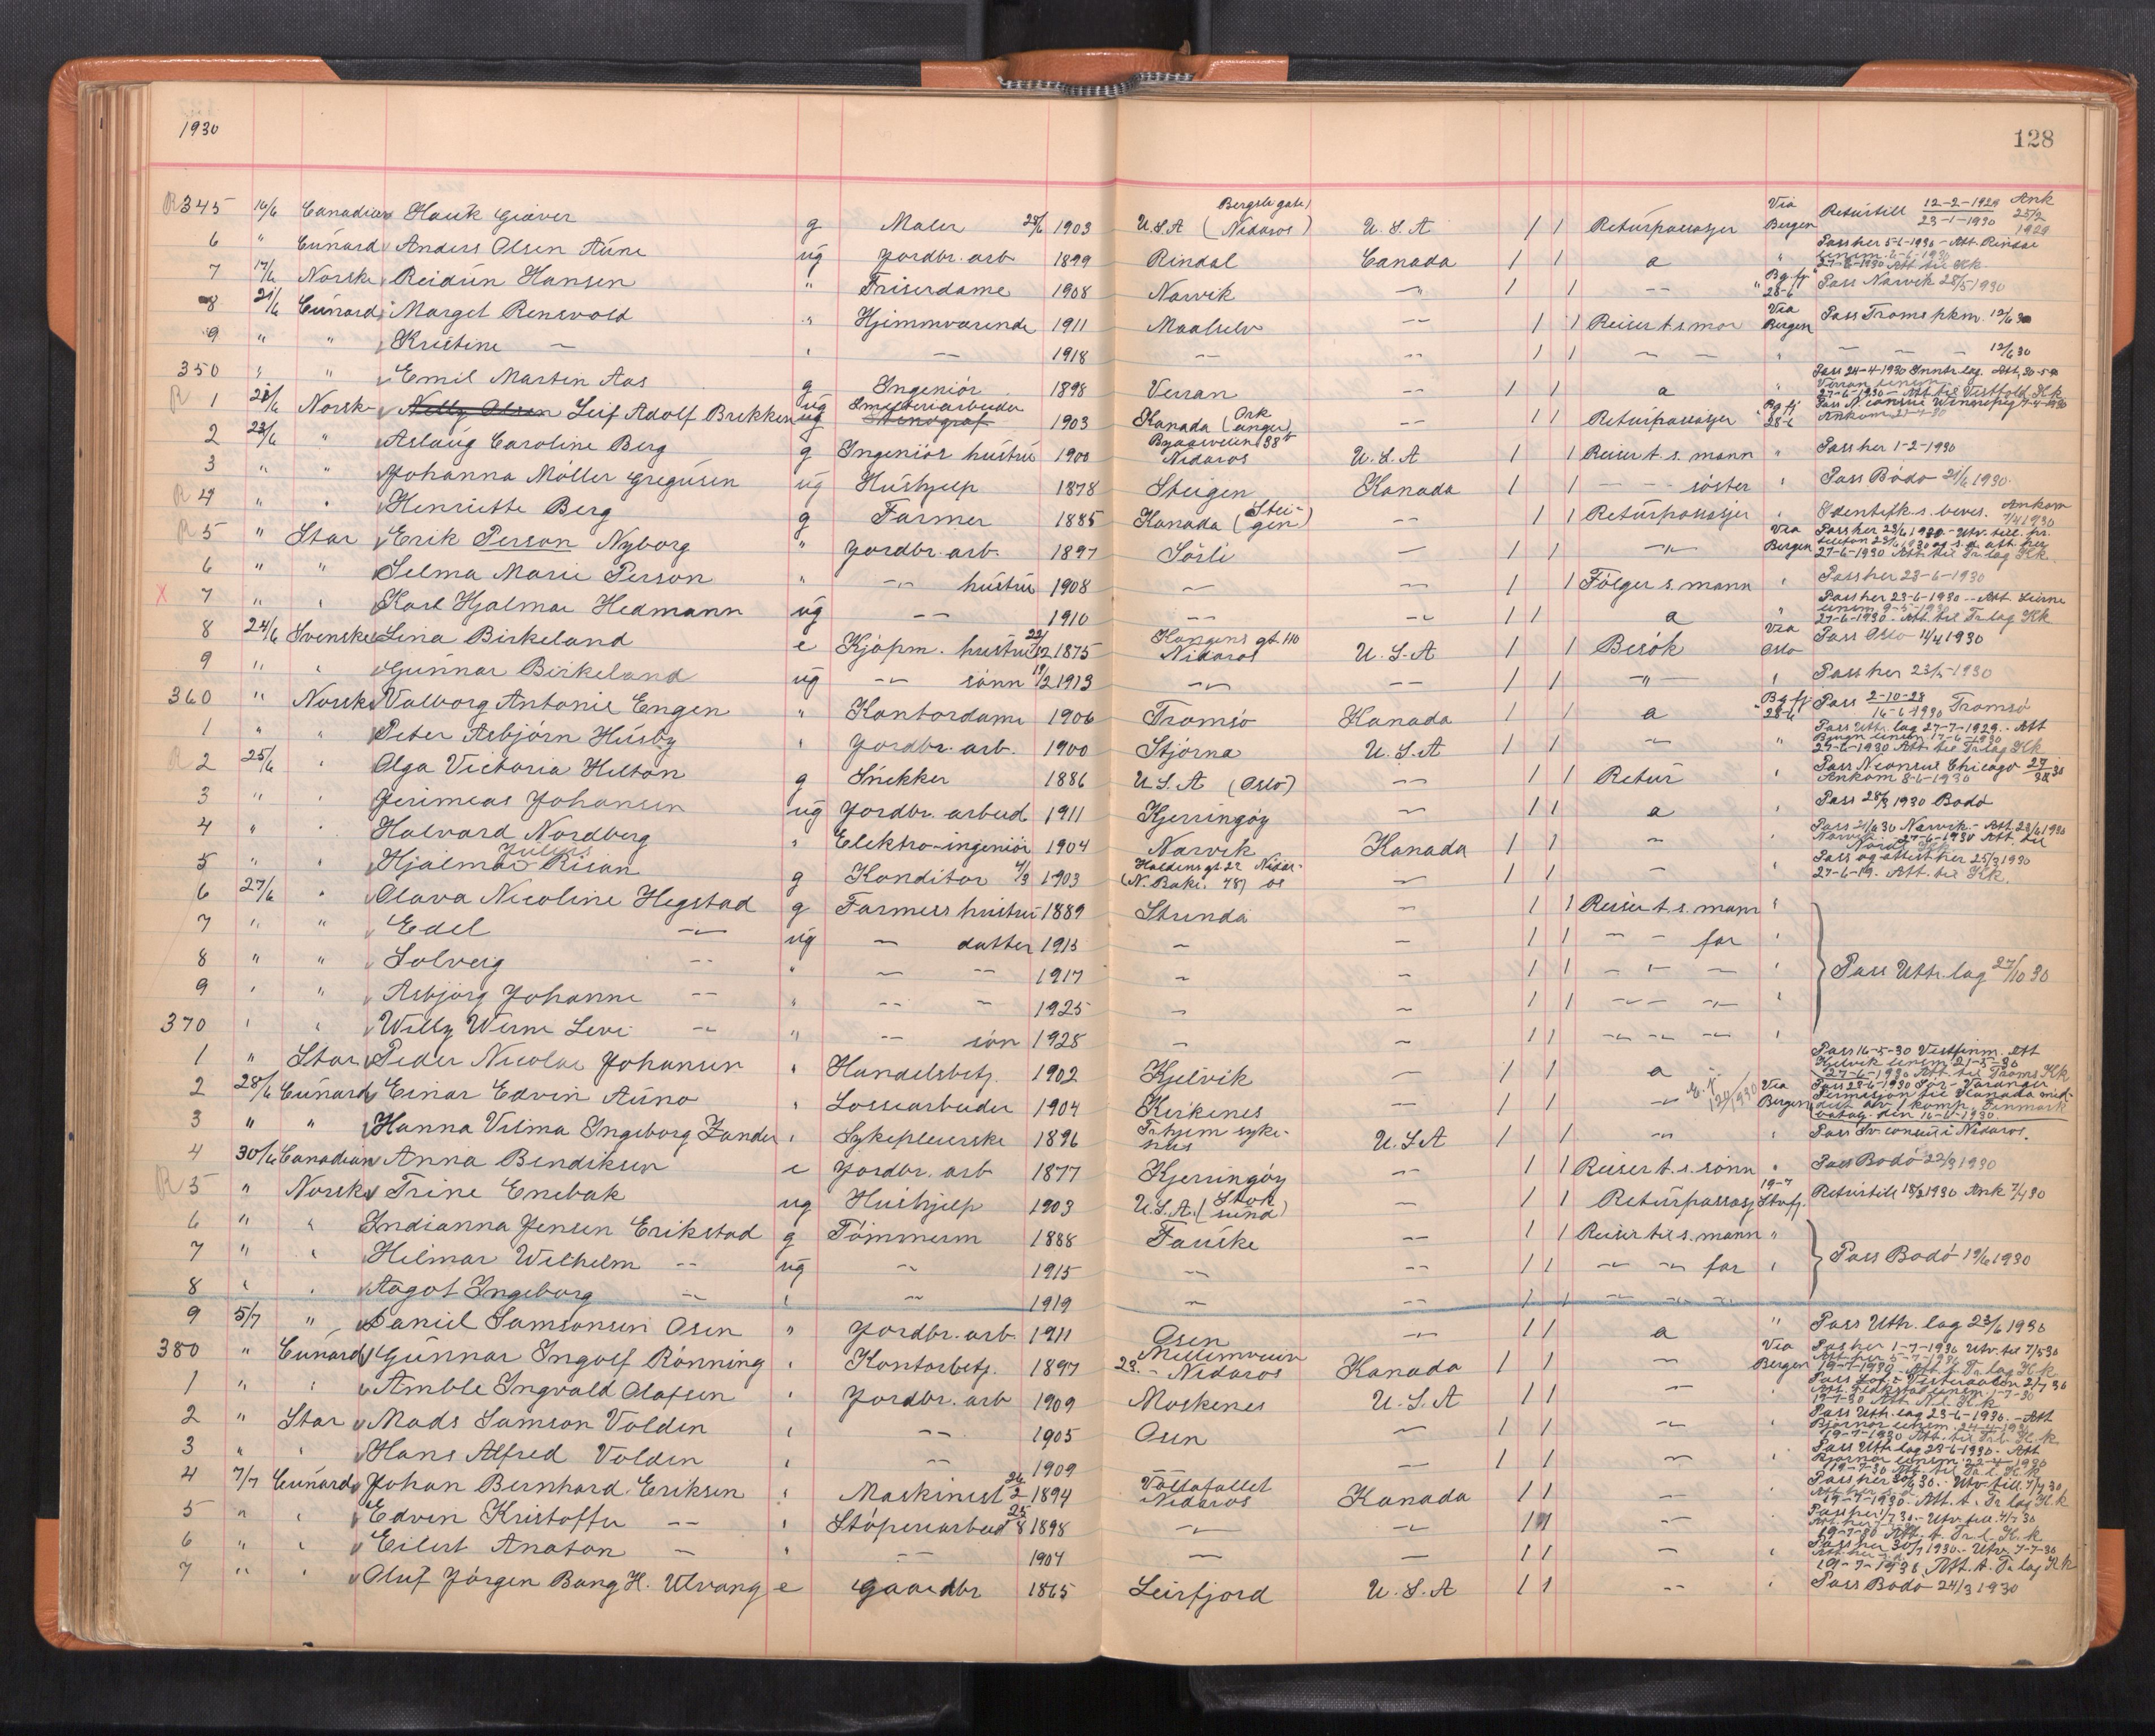 1930
128
R 345 16/6 Canadian Hauk Giæver g Maler 28/6 1903 U.S.A (Bergsli gate, Nidaros) U.S.A 1 1 Returpassasjer Via Bergen Returtill 12-2-1929 23-1-1930 Ank 25/2 1929
6 " Cunard Anders Olsen Aune ug Jordbr. arb 1899 Rindal Canada 1 1 a " Pass her 5-6-1930 - Att. Rindal 27-6-1930 Att til Kk
7 17/6 Norske Reidun Hansen " Friserdame 1908 Narvik -"- 1 1 -- " Bg.fj 28-6 Pass Narvik 28/5 1930
8 21/6 Cunard Marget Rensvold " Hjemmværende 1911 Maalselv -- 1 1 Reiser t. s mor Via Bergen Pass Troms pkm. 12/6 30
9 " " Kristine - " -- 1918 -- -- 1 1 - - " - - - 12/6 30
350 " " Emil Martin Aas g Ingeniör 1898 Verran -- 1 1 a " Pass 24-4-1930 Inntr.lag. Att 30-5- Verran 27-6-1930 - Att til Vestfold Kk
R 1 Norsk Nelly Olsen Leif Adolf Brekken ug Smelteriarbeider Stenograf 1903 Kanada (Orkanger) -- 1 1 Returpassasjer Bg fj 28-6 Ankom
2 23/6 " Aslaug Caroline Berg g Ingeniör hustru 1900 Byaasveien 38 Nidaros U.S.A 1 1 Reiser t. s. mann " Pass her 1-2-1930
3 " " Johanna Möller Gregusen ug Hushjelp 1878 Steigen Kanada 1 1 - - - söster " Pass Bodö 21/6 1930
R 4 " " Henriette Berg g Farmer 1885 Kanada (Steigen) -- 1 1 Returpassasjer " Identifk.s. bevis. Ankom 7/4 1930
R 5 " Star Erik Person Nyborg " Jordbr. arb. 1897 Sörli - 1 1 -"- Via Bergen Pass her 23/6 1930 - Utv. till. pr. telefon 27-6-1930 Att. til Tr.lag Kk
6 " " Selma Marie Person " -"- hustru 1908 - -- 1 1 Fölger s. mann " Pass her 23-6-1930
X 7 " " Karl Hjalmar Hedmann ug -- 1910 -- -- 1 1 a " Pass her 23-6-1930 - Att. Lierne 27-6-1930 - Att. til Tr.lag Kk
8 24/6 Svenske Lina Birkeland e Kjöpm. hustru 22/12 1875 Kongens gt. 110 Nidaros U.S.A 1 1 Besök Via Oslo Pass Oslo 11/4 1930
9 " " Gunnar Birkeland ug -"- sönn 18/2 1913 -"- -- 1 1 -"- " Pass her 23/5-1930
360 " Norske Valborg Antonie Engen " Kontordame 1906 Tromsö Kanada 1 1 a Bg fj 28-6 Pass 2-10-28 16-6-1930 Tromsö
1 " " Peter Asbjörn Husby " Jordbr. arb. 1900 Stjörna U.S.A 1 1 - " Pass Uttr. lag 27-7-1929. - Att Bjugn 17-6-1930 27-6-1930 Att. til Tr.lag Kk
R 2 25/6 " Olga Victoria Hilton g Snekker 1886 U.S.A (Oslo) -- 1 1 Retur " Chicago Ankom 8-6-1930
3 " " Jerimeas Johansen ug Jordbr. arbeid 1911 Kjerringöy - 1 1 a " Pass 28/3 1930 Bodö
4 " " Halvard Nordberg " Elektro-ingeniör 1904 Narvik Kanada 1 1 - " Pass 21/6 30 Narvik - Att. 23/6 1930 Narvik 27-6-1930 Att. til
5 " " Hjalmar Julius Risan g Konditor 4/3 1903 Haldens gt 22 Nidaros (N. Bakl. 48) - 1 1 - " Pass og attest her 25/3 1930 27-6-19. Att. til Kk.
6 27/6 " Olava Nicoline Hegstad g Farmers hustru 1889 Strinda - 1 1 Reiser t. s. mann "
7 " " Edel -"- ug - datter 1913 - - 1 1 - - far "
8 " " Solveig -- " - -- 1917 - - 1 1 - - - " Pass Uttr. lag 27/10 30
9 " " Asbjörg Johanne -- " -- - 1925 - - 1 1 -- - -"- "
370 " " Willy Werne Levi -"- " -- sön 1928 - - 1 1 -- -- -- "
1 " Star Peder Nicolai Johansen " Handelsbetj. 1902 Kjelvik - 1 1 a Pass 16-5-30 Vestfinm. Att Kjelvik 21-5-30 27-6-1930 Att. til Troms Kk
2 28/6 Cunard Einar Edvin Auno " Lossearbeider 1904 Kirkenes - 1 1 - Via Bergen Pass 23-6-1930 Sör-Varanger Permisjon til Kanada med- komp. Finmark den 16-6-1930.
3 " " Hanna Vilma Ingeborg Zander " Sykepleierske 1896 Trhjem sykehus U.S.A 1 1 -"- " Pass Sv. consul i Nidaros.
4 30/6 Canadian Anna Bendiksen e Jordbr. arb 1877 Kjerringöy -- 1 1 Reiser t. s. sönn " Pass Bodö 22/3 1930
R 5 " Norske Trine Enebak ug Hushjelp 1903 U.S.A. (Stoksund) - 1 1 Returpassasj 19-7 Stavfj. Returtill 18/2 1930 Ank 7/4 30
6 " " Indianna Jensen Erikstad g Tömmerm 1888 Fauske -- 1 1 Reiser til s. mann "
7 " " Hilmar Wilhelm -- ug - 1915 -- -- 1 1 -"- -"- far " Pass Bodö 19/6 1930
8 " " Aagot Ingeborg -"- " - 1919 - -- 1 1 -- -- --
9 5/7 " Daniel Samsonsen Osen " Jordbr. arb. 1911 Osen -"- 1 1 a " Pass Uttr. lag 23/6 1930
380 " Cunard Gunnar Ingolf Rönning " Kontorbetj. 1897 Mellemveien 23. - Nidaros Kanada 1 1 - Via Bergen Pass her 1-7-1930 Utv. til 7/5 30 19-7-1930 - Att. t. Tr lag Kk
1 " " Amble Ingvald Olafsen " Jordbr. arb 1909 Moskenes U.S.A 1 1 - " Pass Lof. - Vesteraalen 2/7 30 19-7-30 Att. Kk
2 " Star Mads Samson Volden " -- 1905 Osen - 1 1 - " Pass Uttr. lag 23-6-1930. - Att Björnör 19-7-1930 Att. til Tr.l. Kk
3 " " Hans Alfred Volden " -- 1909 - 1 1 - " Pass Uttr lag 23-6-1930. Att Björnör 19-7-30 Att. til Tr.l. Kk
4 7/7 Cunard Johan Bernhard Eriksen " Maskinist 26/2 1894 Vöttafallet Nidaros Kanada 1 1 - " Pass her 30/6 30. - Utv. till. 7/7 30 19-7-1930 - Att. t. Tr lag Kk
5 " " Edvin Kristoffer -- " Stöperiarbeid 25/8 1898 -"- -"- 1 1 - Pass her 1/7 30. - Utv. till. 7/7 30 19-7-30 Att. t. Tr.l. Kk
6 " " Eilert Anaton - " -- 1904 - - 1 1 - " Pass her 30/7 1930. - Utv. 7-7-30 19-7-1930. Att. t. Tr lag Kk
7 " " Oluf Jörgen Bang H. Ulvang e gaardbr 1865 Leirfjord U.S.A 1 1 -- " Pass Bodö 24/3 1930